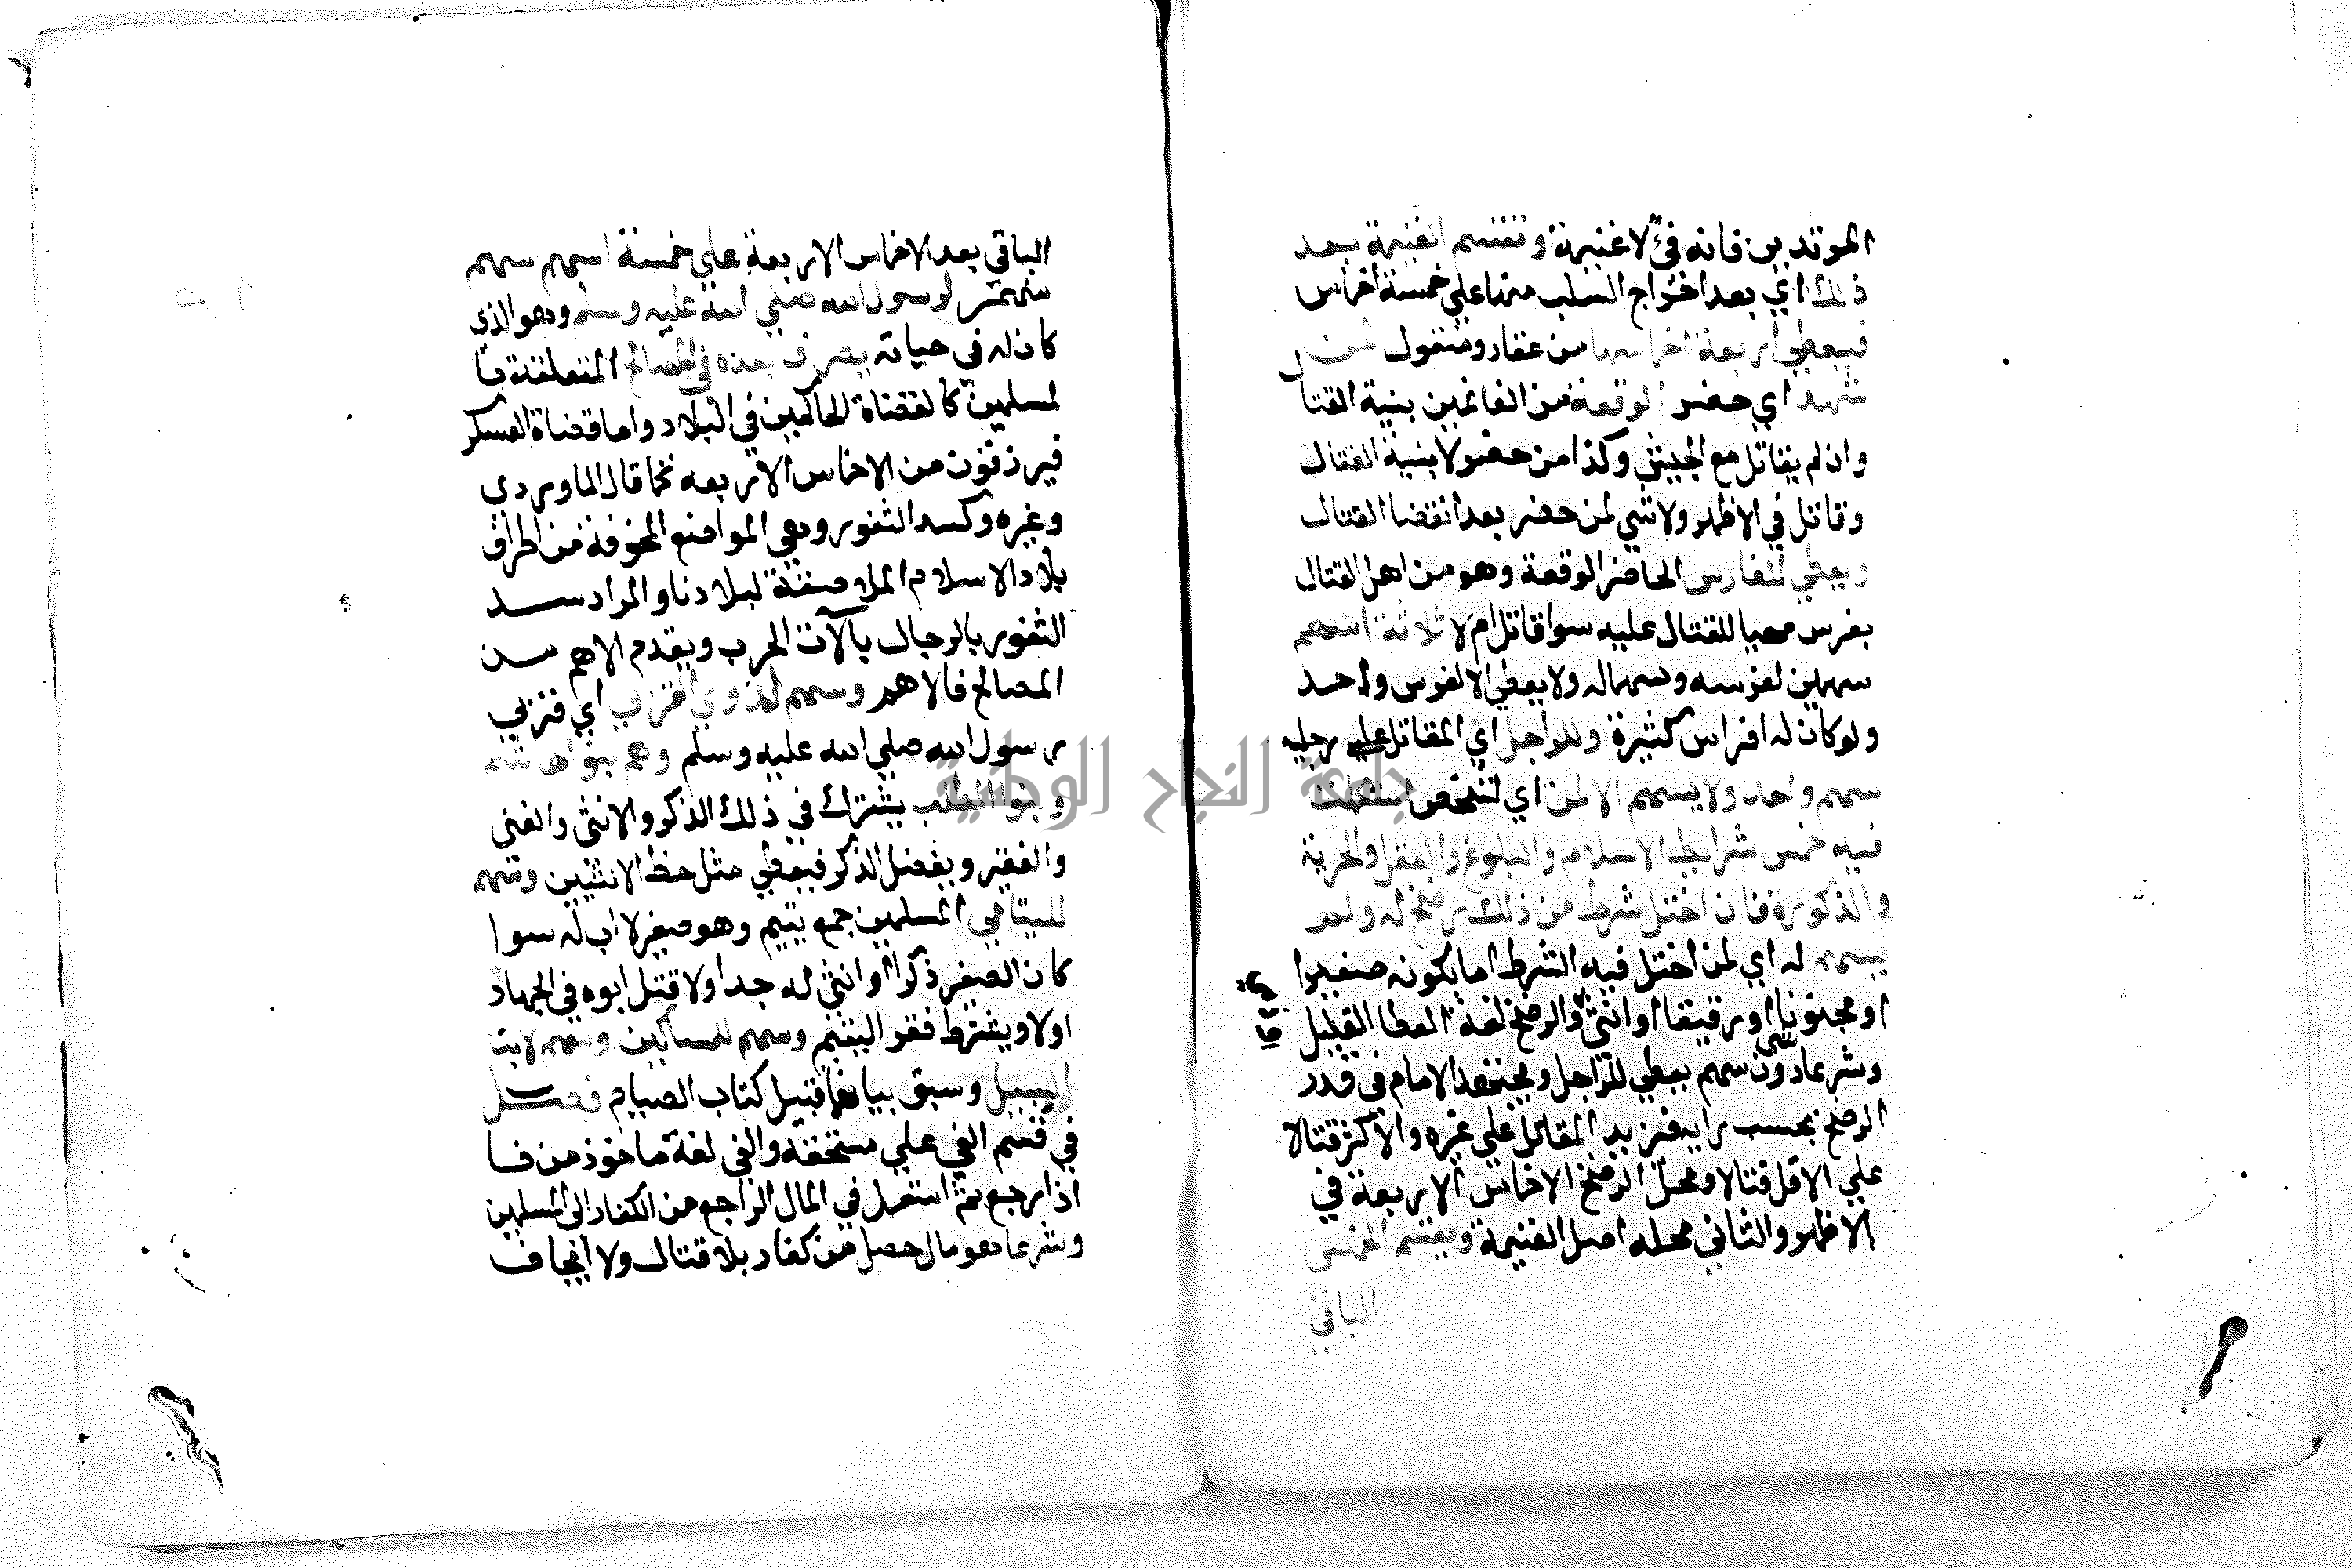 المرتدين فانه فيٌ لا غنيمة وتقسم الغنيمة بعد
ذلك اي بعد اخراج السلب منها علي خمسة اخماس
فيعطي اربعة اخماسها من عقار ومنقول لمن
شهد اي حضر الوقعة من الغانمين بنية القتال
وان لم يقاتل مع الجيش وكذا من حضر لا بنية القتال
وقاتل في الاظهر ولا شي لمن حضر بعد انقضا القتال
ويعطي للفارس الحاضر الوقعة وهو من اهل القتال
بفرس مهيا للقتال عليه سوا قاتل ام لا ثلاثة اسهم
سهمين لفرسه وسهما له ولا يعطي الا لفرس واحد
ولو كان له افراس كثيرة وللراجل اي المقاتل علي رجليه
سهم واحد ولا يسهم الا لمن اي لشخص استكملت
فيه خمس شرايط الاسلام والبلوغ والعقل والحرية
والذكورة فان اختل شرط من ذلك رضخ له ولم
يسهم له اي لمن اختل فيه الشرط اما بكونه صغيرا
او مجنونا او رقيقا او انثي والرضخ لغة العطا القليل
وشرعا شي دون سهم يعطي للراجل ويجتهد الامام في قدر
الرضخ بحسب رايه فيزيد المقاتل علي غيره والاكثر قتالا
علي الاقل قتالا ومحل الرضخ الاخماس الاربعة في
الاظهر والثاني محله اصل الغنيمة ويقسم الخمس
الباقي
الباقي بعد الاخماس الاربعة علي خمسة اسهم سهم
منهم لرسول الله صلي الله عليه وسلم وهو الذي
كان له في حياته يصرف بعده في المصالح المتعلقة با
لمسلمين كالقضاة الحاكمين في البلاد واما قضاة العسكر
فيرزقون من الاخماس الاربعه كما قال الماوردي
وغيره وكسد الثغور وهي المواضع المخوفة من اطراف
بلاد الاسلام الملاصقة لبلادنا والمراد سد
الثغور بالرجال بآلات الحرب ويقدم الاهم من
المصالح فالاهم وسهم لذوي القربي اي قربي
رسول الله صلي الله عليه وسلم وهم بنو هاشم
وبنوا المطلب يشترك في ذلك الذكر والانثي والغني
والفقير ويفضل الذكر فيعطي مثل حظ الانثيين وسهم
لليتامي المسلمين جمع يتيم وهو صغير لا اب له سوا
كان الصغير ذكرا او انثي له جد اولا قتل ابوه في الجهاد
اولا ويشترط فقر اليتيم وسهم للمساكين وسهم لابنا
السبيل وسبق بيانهما قبيل كتاب الصيام فصل
في قسم الفي علي مستحقه والفي لغة ماخوذ من فا
اذا رجع ثم استعمل في المال الراجع من الكفار الي المسلمين
وشرعا هو مال حصل من كفار بلا قتال ولا ايجاف
جامعة النجاح الوطنية